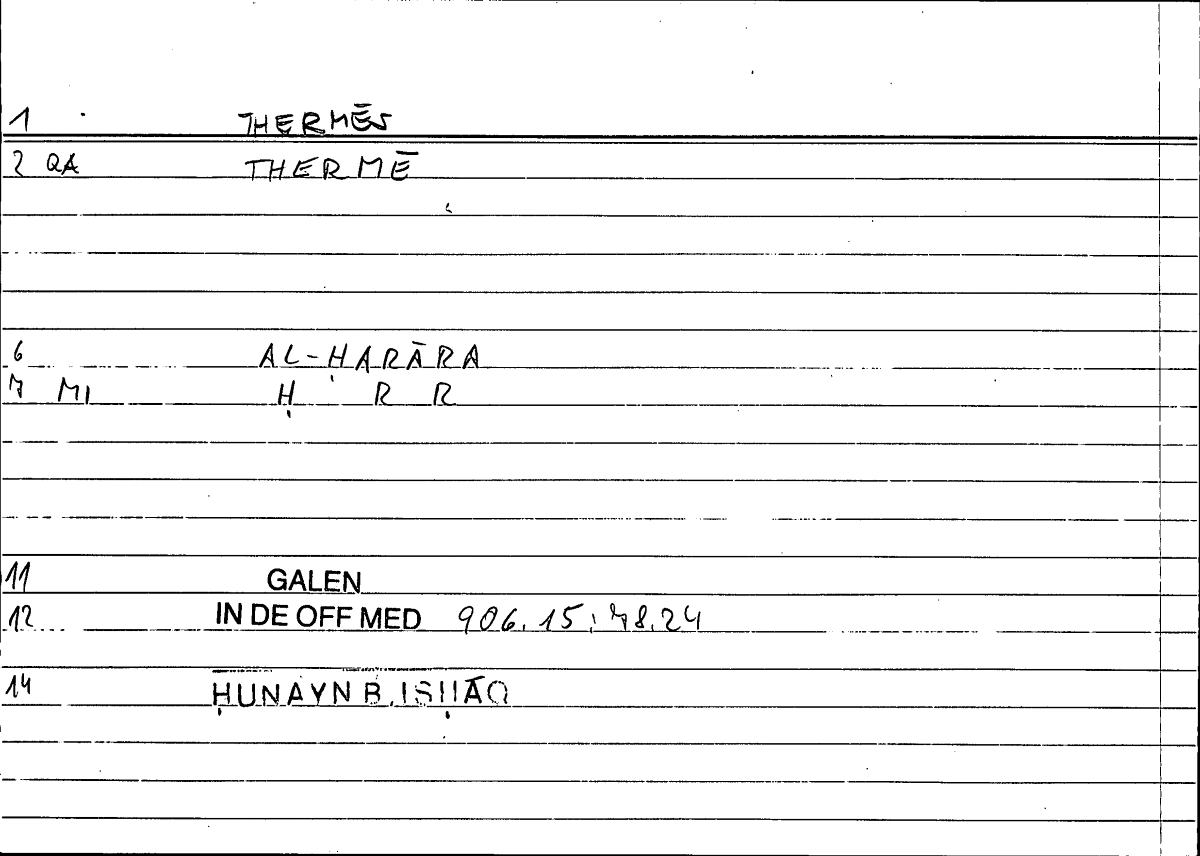 1 THERMĒS
2 QA THERMĒ
6 AL-ḤARĀRA
7 MI Ḥ R R
11 GALEN
12 IN DE OFF MED 906.15; 78.24
14 ḤUNAYN B. ISḤĀQ